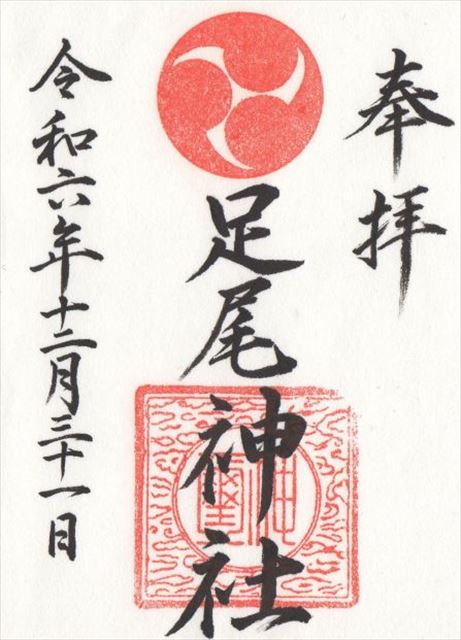 奉拝
足尾神社
令和六年十二月三十一日